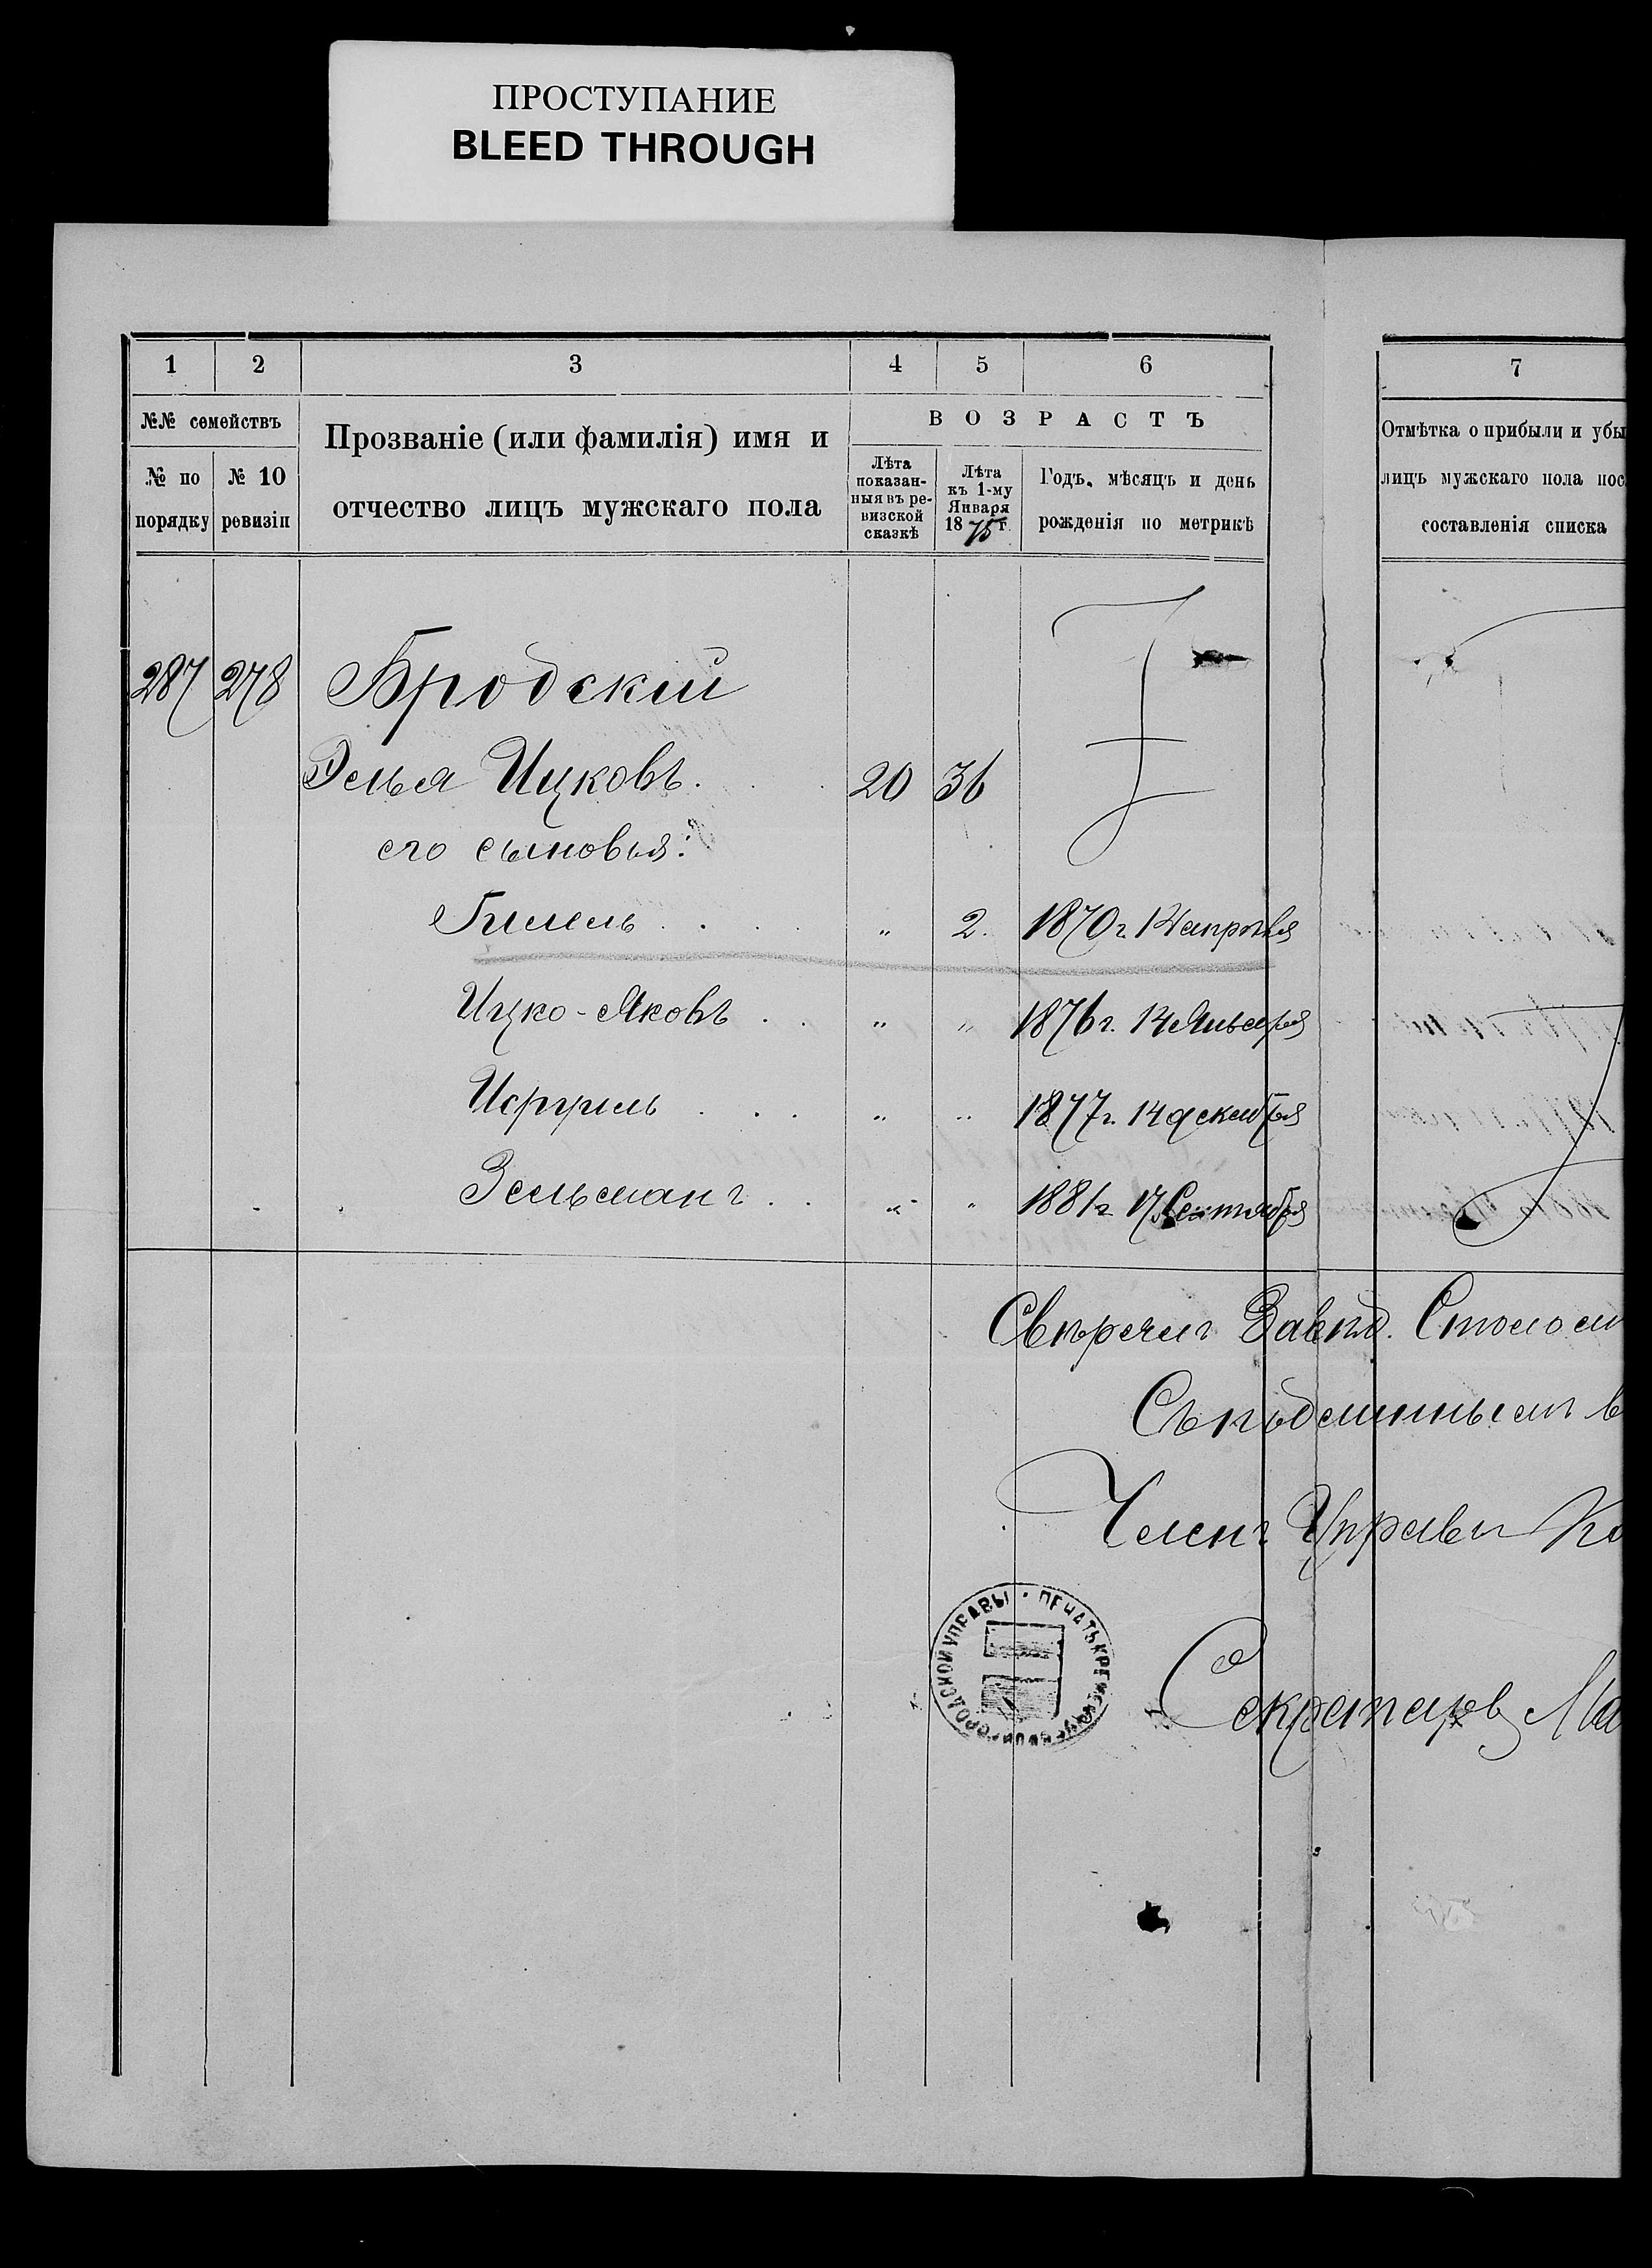 ПРОСТУПАНИЕ
BLEED THROUGH
1 2 3 4 5 6 7
№№ семействъ
№ по порядку
№ 10 ревизіи
Прозваніе (или фамилія) имя и
отчество лицъ мужскаго пола
ВОЗРАСТЪ
Лѣта показан-
ныя въ ре-
визской
сказкѣ
Лѣта
къ 1-му
Января
1875 г.
Годъ, мѣсяцъ и день
рожденія по метрикѣ
Отмѣтка о прибыли и убы
лицъ мужскаго пола пос
составленія списка
287 278 Бродскій
Элья Ицковъ. 20 36
его сыновья:
Гилель . . . " 2. 1870 г. 14 апрѣля
Ицко-Яковъ . . " " 1876 г. 14 Января
Исруиль . . . " " 1877 г. 14 декабря
Зельманъ . . " " 1881 г. 17 Сентября
Свѣрялъ Завѣд. Столом
Съ подлиннымъ в
Членъ Управы
Секретарь
ПЕЧАТЬ КРЕМЕНЧУГСКОЙ ГОРОДСКОЙ УПРАВЫ